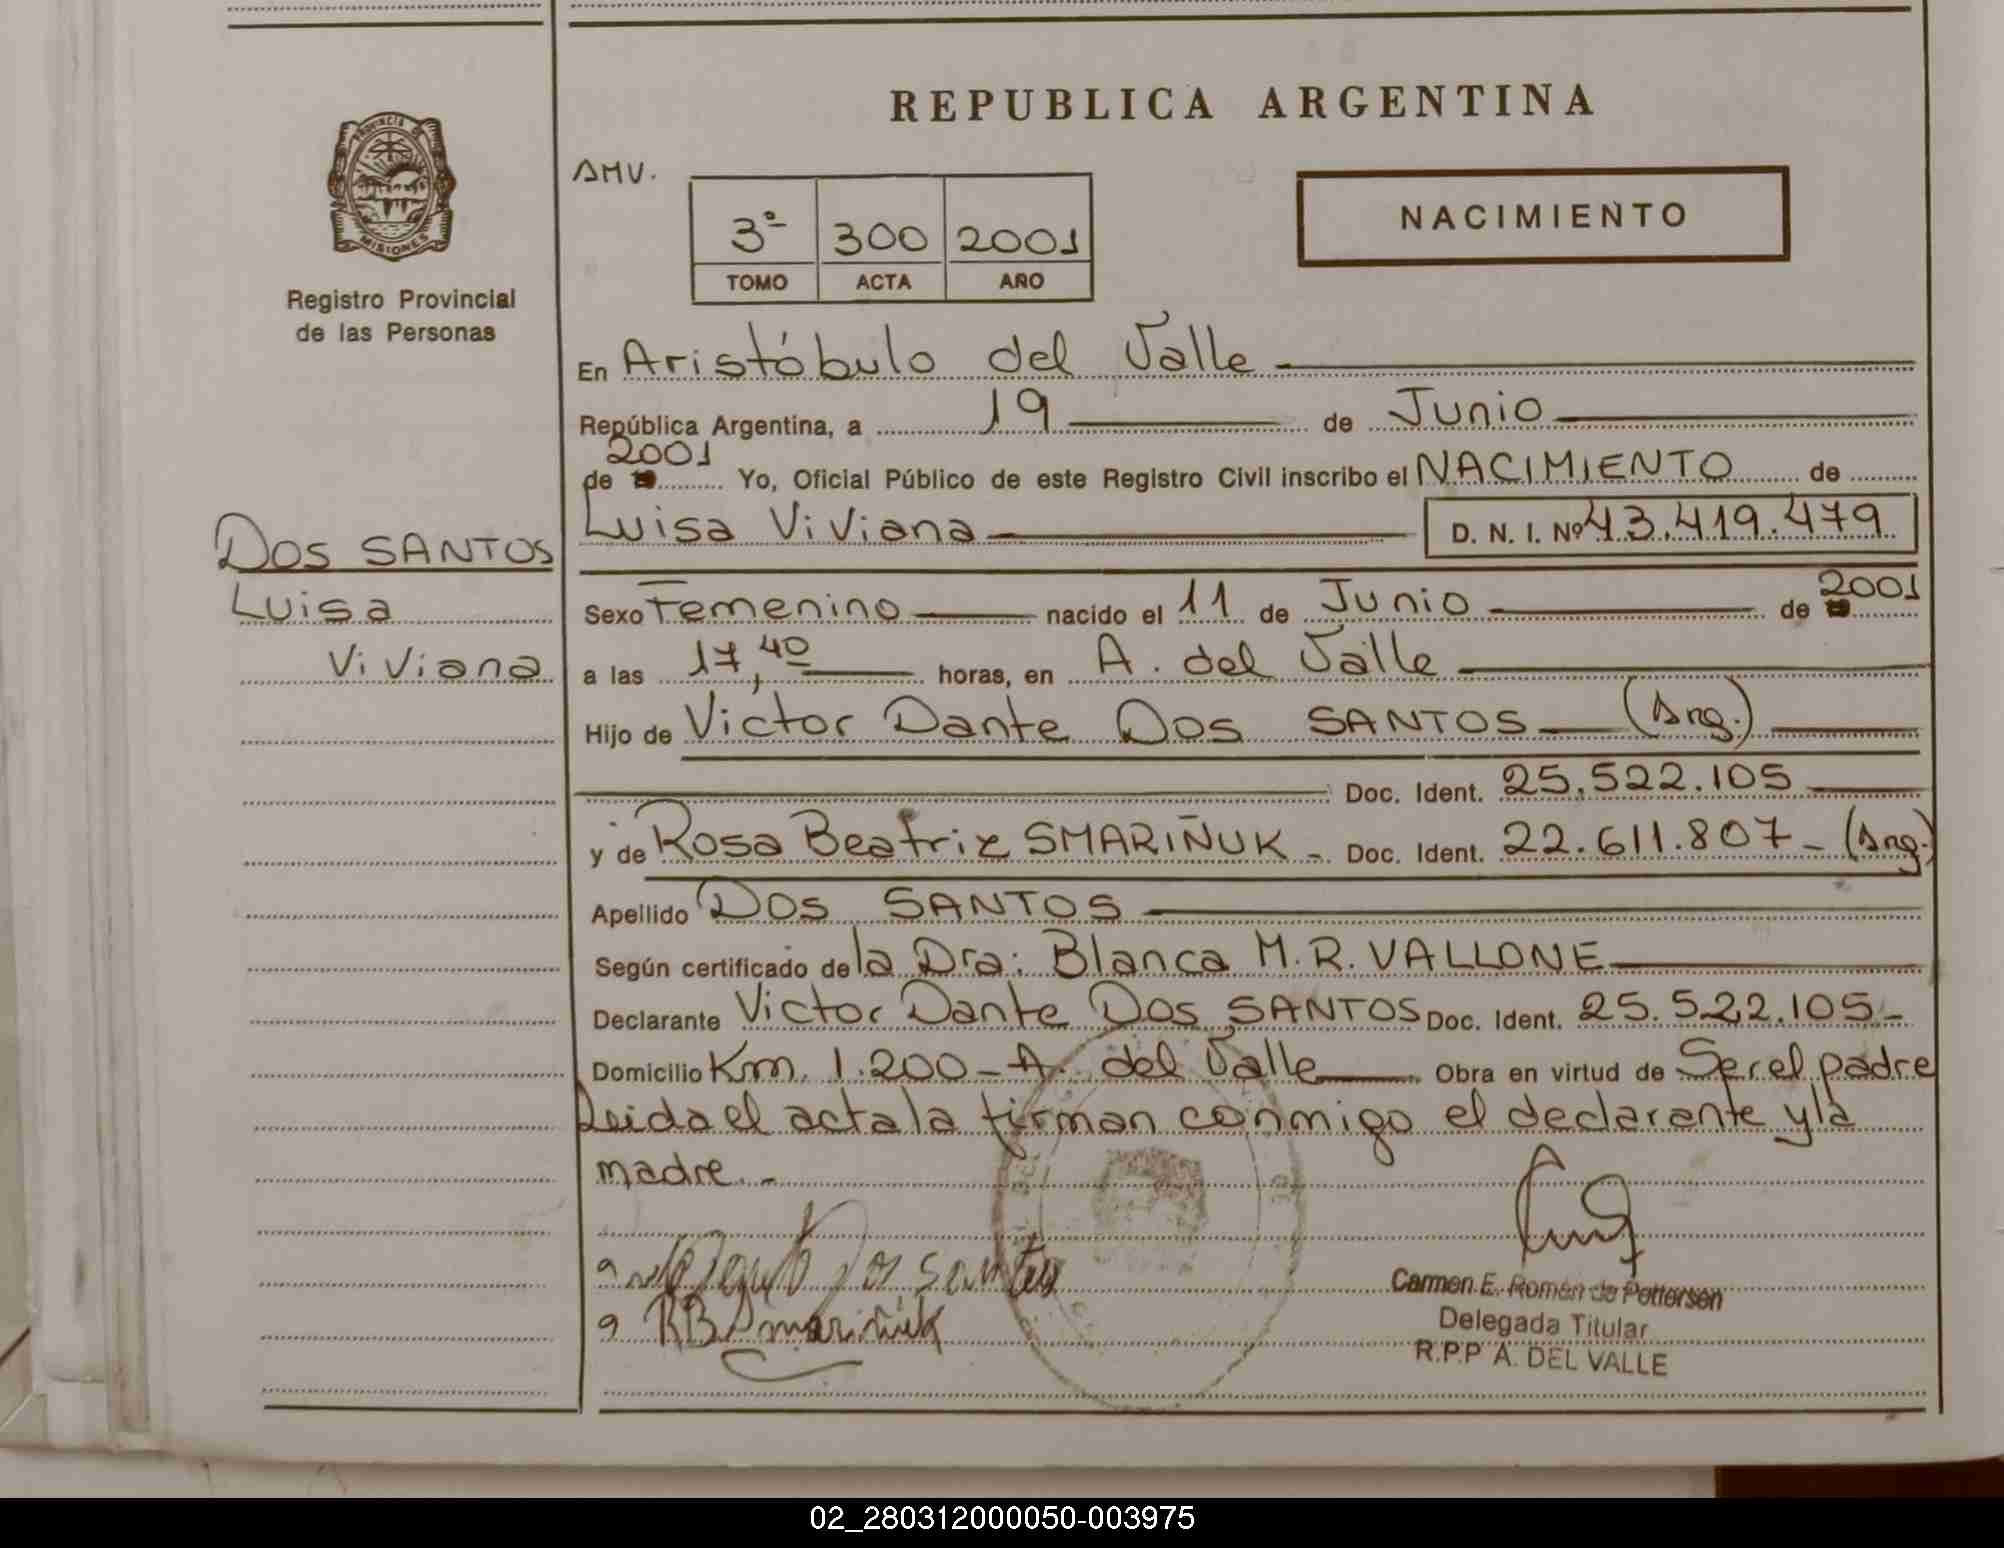 REPUBLICA ARGENTINA
PROVINCIA DE
MISIONES
Registro Provincial
de las Personas
AMV.
3º 300 2001
TOMO ACTA AÑO
NACIMIENTO
En Aristóbulo del Valle
República Argentina, a 19 de Junio
2001
de Yo, Oficial Público de este Registro Civil inscribo el NACIMIENTO de
Luisa Viviana D. N. I. Nº 43.419.479
DOS SANTOS
Luisa
Viviana
Sexo Femenino nacido el 11 de Junio de 2001
a las 17,40 horas, en A. del Valle
Hijo de Victor Dante Dos SANTOS (Arg.)
Doc. Ident. 25.522.105
y de Rosa Beatriz SMARIÑUK - Doc. Ident. 22.611.807 - (Arg.)
Apellido DOS SANTOS
Según certificado de la Dra: Blanca M.R. VALLONE
Declarante Victor Dante Dos SANTOS Doc. Ident. 25.522.105-
Domicilio Km. 1.200 - A. del Valle Obra en virtud de Ser el padre
Leida el acta la firman conmigo el declarante y la
madre.-
Dos Santos
RB Smariñuk
Carmen E. Román de Pettersen
Delegada Titular
R.P.P A. DEL VALLE
02_280312000050-003975